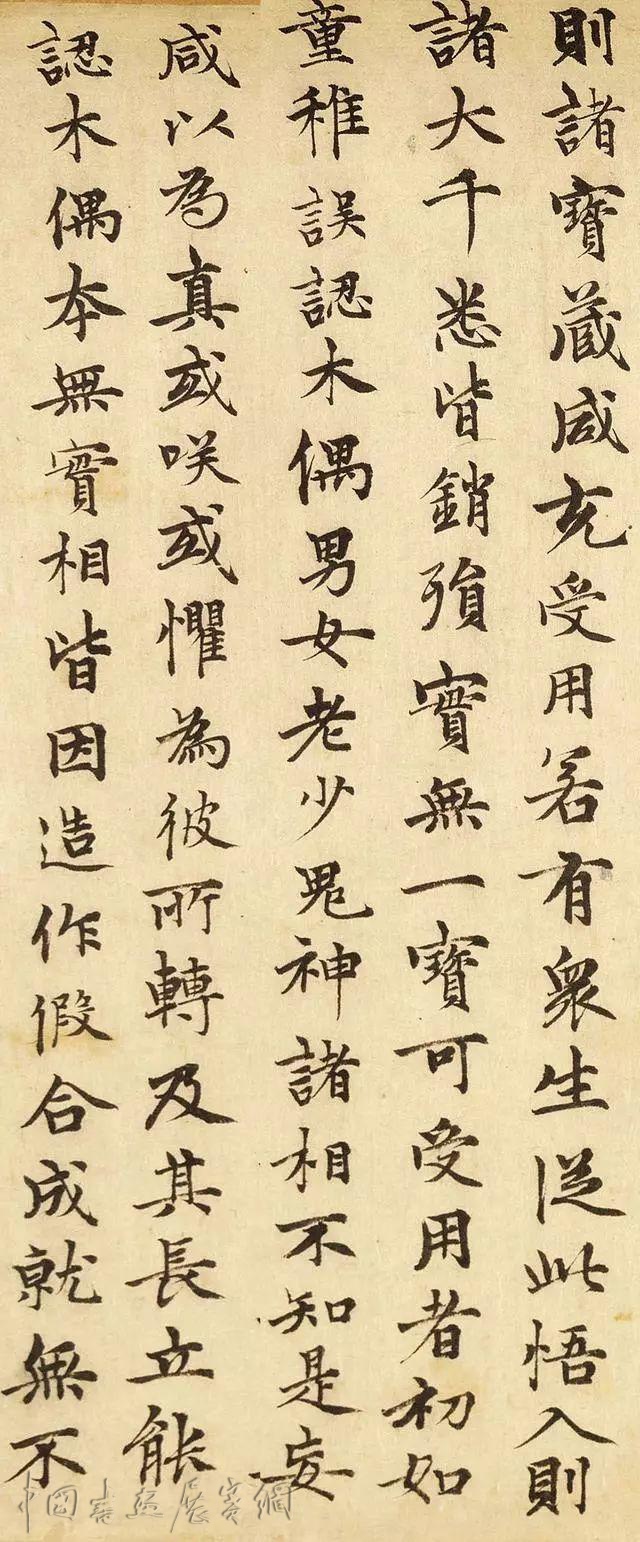 則諸寶藏咸充受用若有衆生從此悟入則
諸大千悉皆銷殞實無一寶可受用者初如
童稚誤認木偶男女老少鬼神諸相不知是妄
咸以為真或咲或懼為彼所轉及其長立能
認木偶本無實相皆因造作假合成就無不
中國書畫展賽網